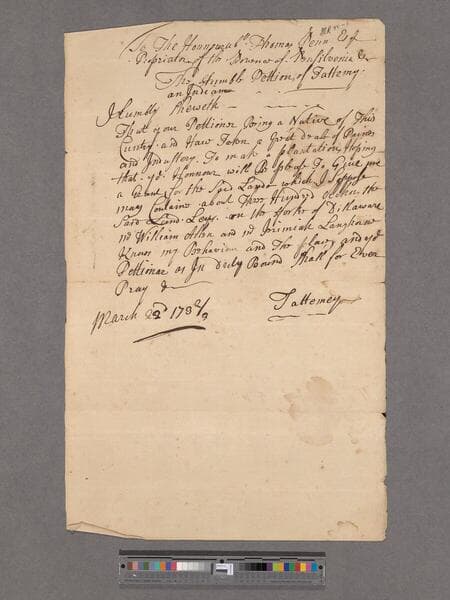 To The Honnourabl. Thomas Penn Esqr
Propriator of the Provence of Pensilvenia &c
The Humble Pettion of Tattemy
an Indian
Humbly Sheweth
That your Pettioner Being a Native of This
Cuntry and Haw Taken a Great deal of Paines
and Industory To make a plantation Hoping
that yr. Honnour will Be pleased To Give me
a Grant for the Said Land which I Suppose
may Contains about Three Hundred the
Said Land Leys on the Forks of Dillaware
mr William Allen and mr Jeremiah Langhorne
Knows my Behaviour and The place and yr
Pettioner as In duty Bound Shall for Ever
Pray &
Tattemey
March 22d 173 8/9